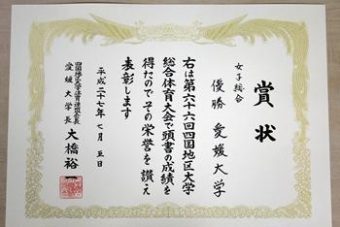 賞状
女子総合
優勝 愛媛大学
右は第六十六回四国地区大学
総合体育大会で頭書の成績を
得たのでその栄誉を讃え
表彰します
平成二十七年七月五日
四国地区大学体育連盟会長
愛媛大学長 大橋裕一